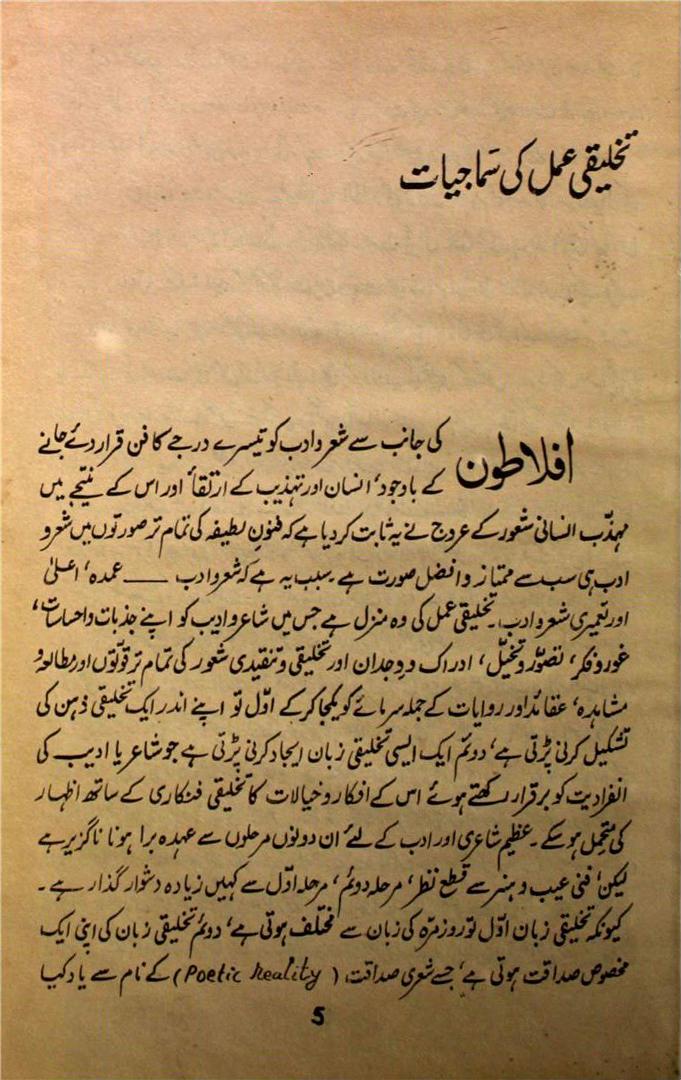 تخلیقی عمل کی سَماجیات
افلاطون کی جانب سے شعر و ادب کو تیسرے درجے کا فن قرار دئے جانے
کے باوجود، انسان اور تہذیب کے ارتقأ اور اس کے نتیجے میں
مہذّب انسانی شعور کے عروج نے یہ ثابت کر دیا ہے کہ فنونِ لطیفہ کی تمام تر صورتوں میں شعر و
ادب ہی سب سے ممتاز و افضل صورت ہے۔ سبب یہ ہے کہ شعر و ادب ــــ عمدہ، اعلیٰ
اور تعمیری شعر و ادب۔ تخلیقی عمل کی وہ منزل ہے جس میں شاعر و ادیب کو اپنے جذبات و احساسات،
غور و فکر، تصوّر و تخیّل، ادراک و وجدان اور تخلیقی و تنقیدی شعور کی تمام تر قوّتوں اور مطالعہ و
مشاہدہ، عقائد اور روایات کے جملہ سرمائے کو یکجا کرکے اوّل تو اپنے اندر ایک تخلیقی ذہن کی
تشکیل کرنی پڑتی ہے، دوئم ایک ایسی تخلیقی زبان ایجاد کرنی پڑتی ہے جو شاعر یا ادیب کی
انفرادیت کو برقرار رکھتے ہوئے اس کے افکار و خیالات کا تخلیقی فنکاری کے ساتھ اظہار
کی متحمل ہو سکے۔ عظیم شاعری اور ادب کے لئے ان دونوں مرحلوں سے عہدہ برا ہونا ناگزیر ہے
لیکن، فنی عیب و ہنر سے قطع نظر، مرحلہ دوئم، مرحلہ اوّل سے کہیں زیادہ دشوار گذار ہے۔
کیونکہ تخلیقی زبان اوّل تو روزمرّہ کی زبان سے مختلف ہوتی ہے، دوئم تخلیقی زبان کی اپنی ایک
مخصوص صداقت ہوتی ہے، جسے شعری صداقت، (Poetic Reality) کے نام سے یاد کیا
5